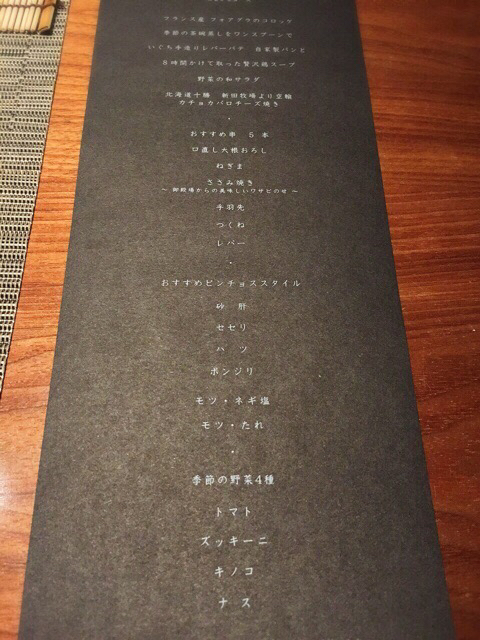 フランス産 フォアグラのコロッケ
季節の茶碗蒸しをワンスプーンで
いぐち手造りレバーパテ 自家製パンと
8時間かけて取った贅沢鶏スープ
野菜の和サラダ
北海道十勝 新田牧場より空輸
カチョカバロチーズ焼き
おすすめ串 5本
口直し大根おろし
ねぎま
ささみ焼き
～ 御殿場からの美味しいワサビのせ ～
手羽先
つくね
レバー
おすすめピンチョススタイル
砂肝
セセリ
ハツ
ボンジリ
モツ・ネギ塩
モツ・たれ
季節の野菜4種
トマト
ズッキーニ
キノコ
ナス